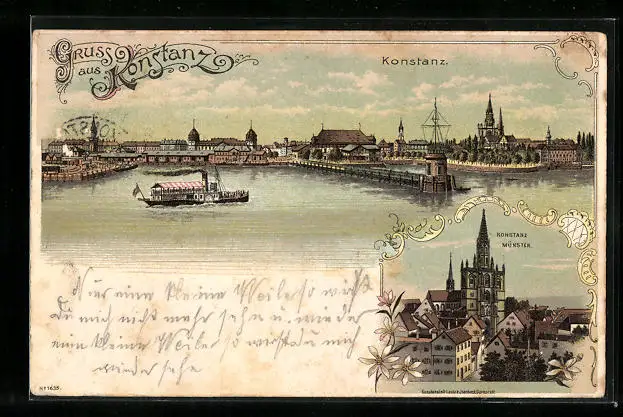 Gruss
aus Konstanz
Konstanz.
KONSTANZ
MÜNSTER.
Nur eine kleine Weile so wirst
Du mich nicht mehr sehn u. wieder
eine kleine Weile so wirst du mich
wieder sehn
No 1635.